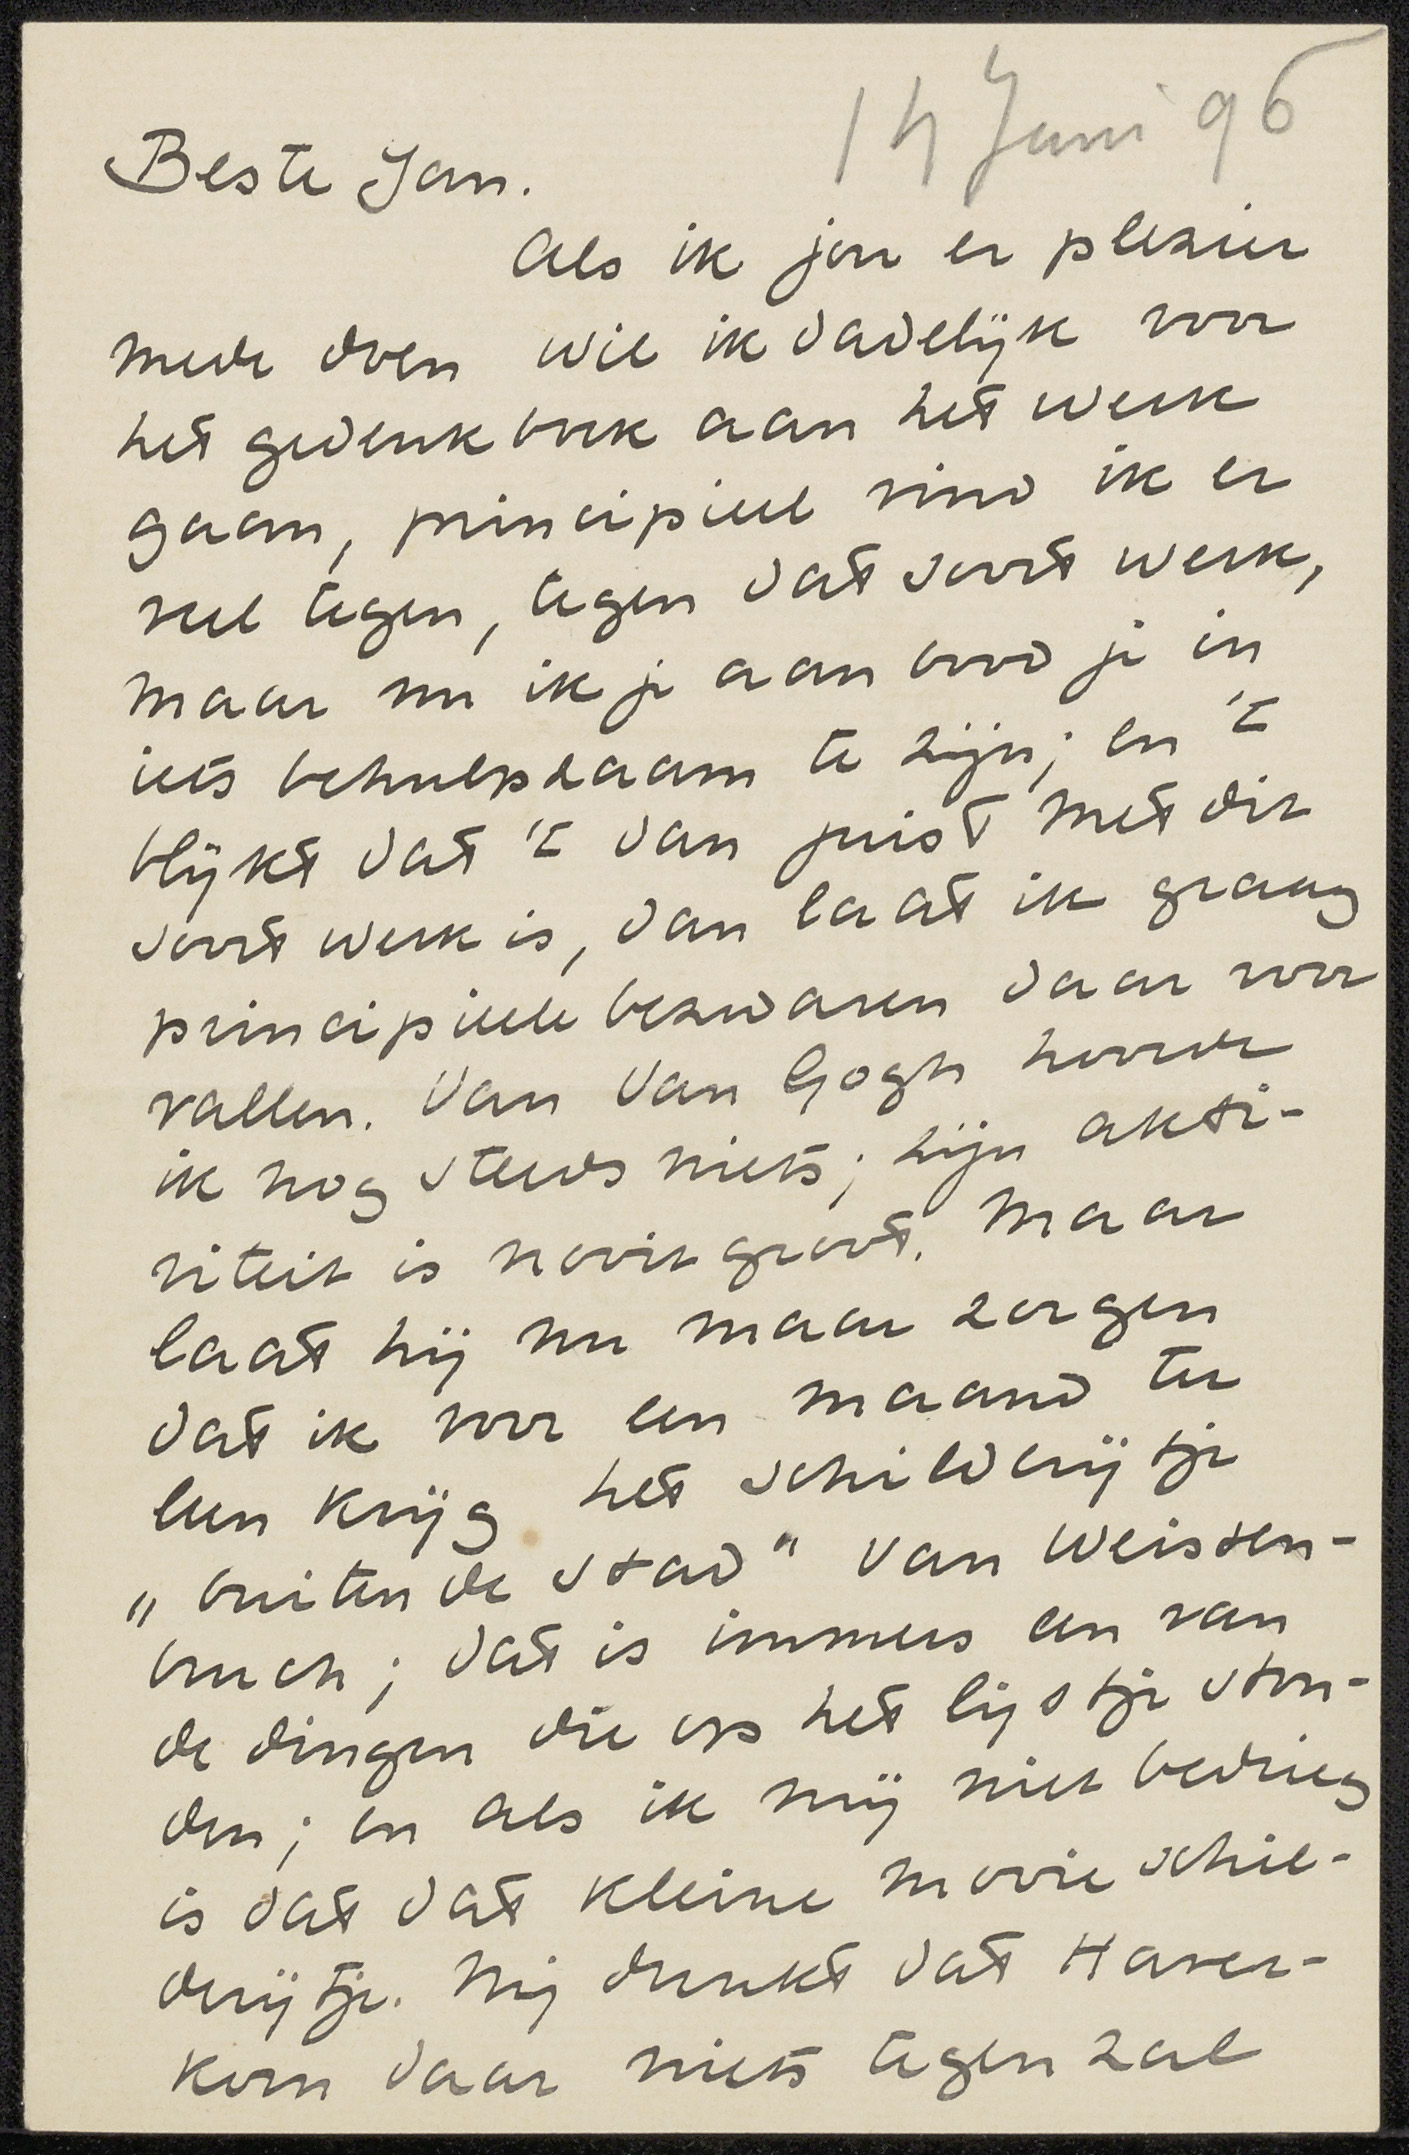 14 Juni 96
Beste Jan.
Als ik jou er plezier
mede doen wil ik dadelijk voor
het gedenkboek aan het werk
gaan, principieel vind ik er
veel tegen, tegen dat soort werk,
maar nu ik je aanbood je in
iets behulpzaam te zijn; en 't
blijkt dat 't dan juist met dit
soort werk is, dan laat ik graag
principieele bezwaren daar voor
vallen. Van Van Gogh hoorde
ik nog steeds niets; zijn akti-
viteit is nooit groot. Maar
laat hij nu maar zorgen
dat ik voor een maand ter
leen krijg het schilderijtje
„buiten de stad" van Weissen-
bruch; dat is immers een van
de dingen die op het lijstje ston-
den; en als ik mij niet bedrieg
is dat dat kleine mooie schil-
derijtje. Mij dunkt dat Haver-
korn daar niets tegen zal